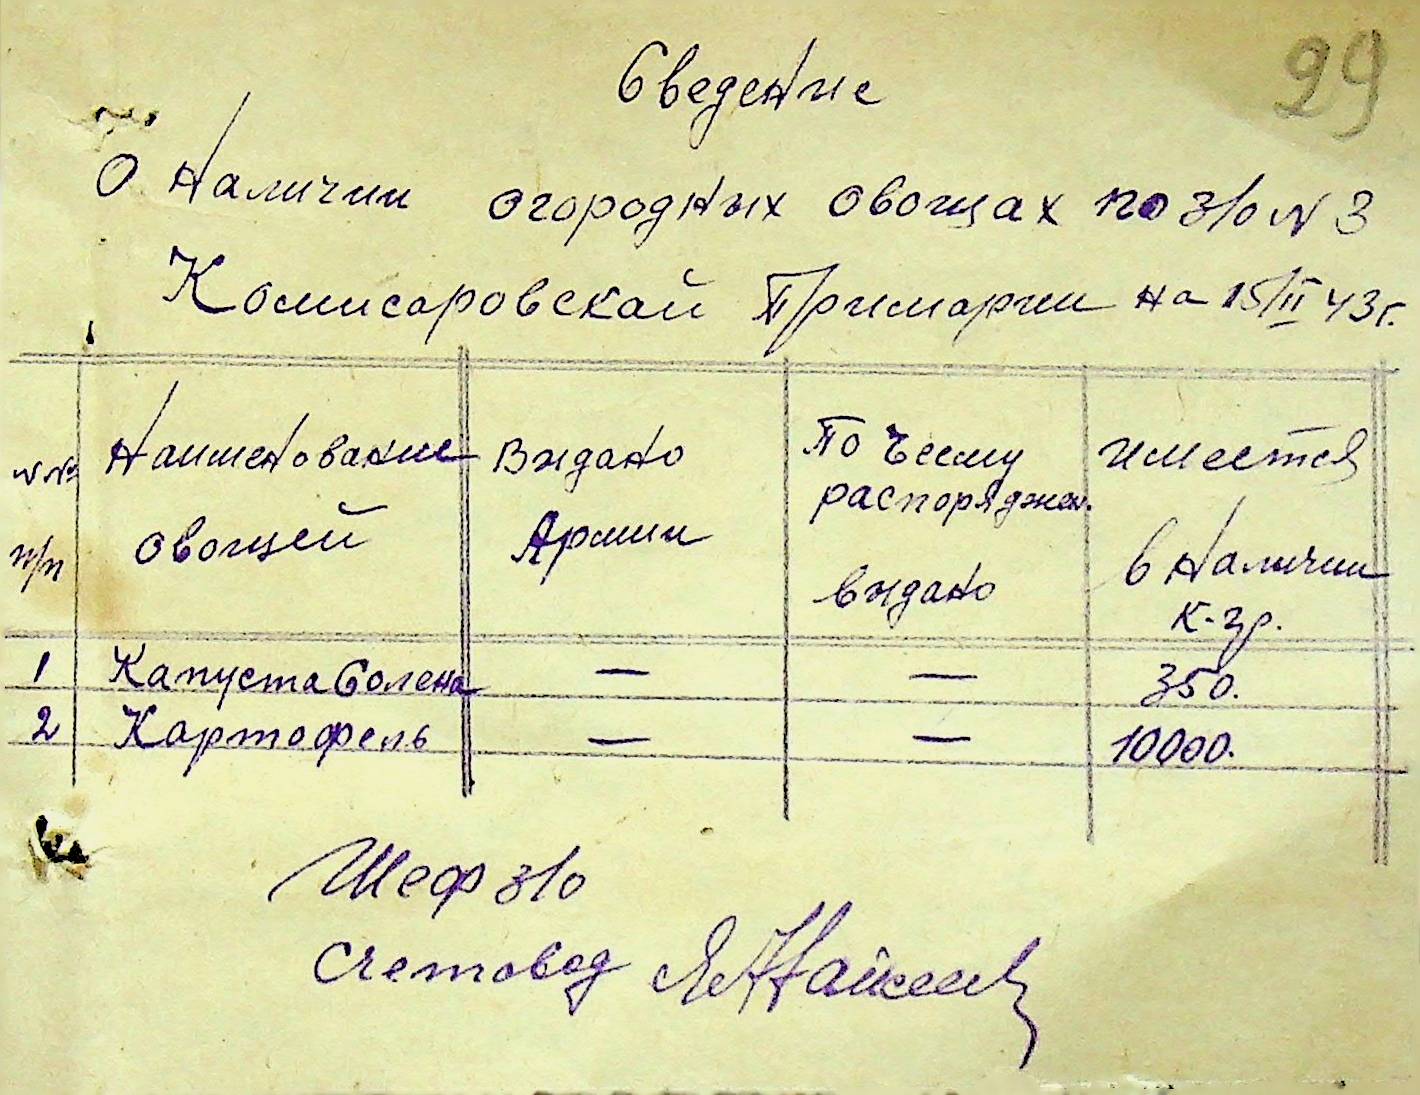 29
Сведение
О Наличии огородных овощах по з/о N 3
Комисаровской Примарии на 15/II 43 г.
NN п/п
Наименование овощей
Выдано Армии
По чьему распоряджен. выдано
имеется в Наличии к-гр.
1 Капуста Солена — — 350.
2 Картофель — — 10000.
Шеф з/о
Счетовод